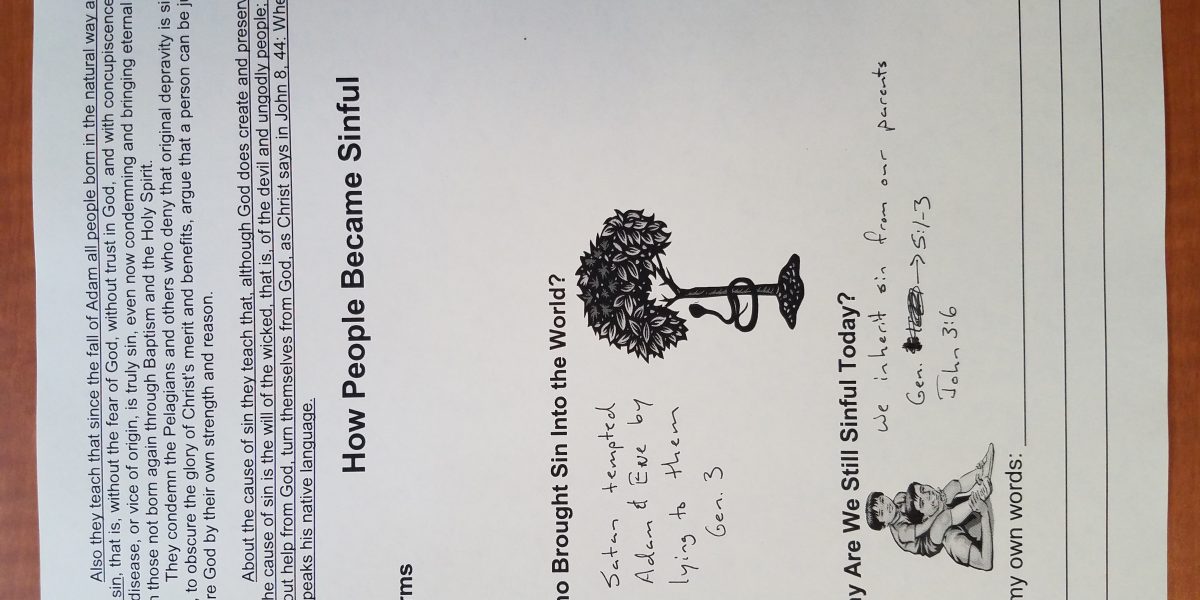 Also they teach that since the fall of Adam all people born in the natural way a
sin, that is, without the fear of God, without trust in God, and with concupiscence
disease, or vice of origin, is truly sin, even now condemning and bringing eternal
those not born again through Baptism and the Holy Spirit.
They condemn the Pelagians and others who deny that original depravity is si
, to obscure the glory of Christ's merit and benefits, argue that a person can be ju
re God by their own strength and reason.
About the cause of sin they teach that, although God does create and preserv
he cause of sin is the will of the wicked, that is, of the devil and ungodly people;
out help from God, turn themselves from God, as Christ says in John 8, 44: Whe
peaks his native language.
How People Became Sinful
rms
ho Brought Sin Into the World?
Satan tempted
Adam & Eve by
lying to them
Gen. 3
hy Are We Still Sinful Today?
We inherit sin from our parents
Gen. → 5:1-3
John 3:6
my own words: